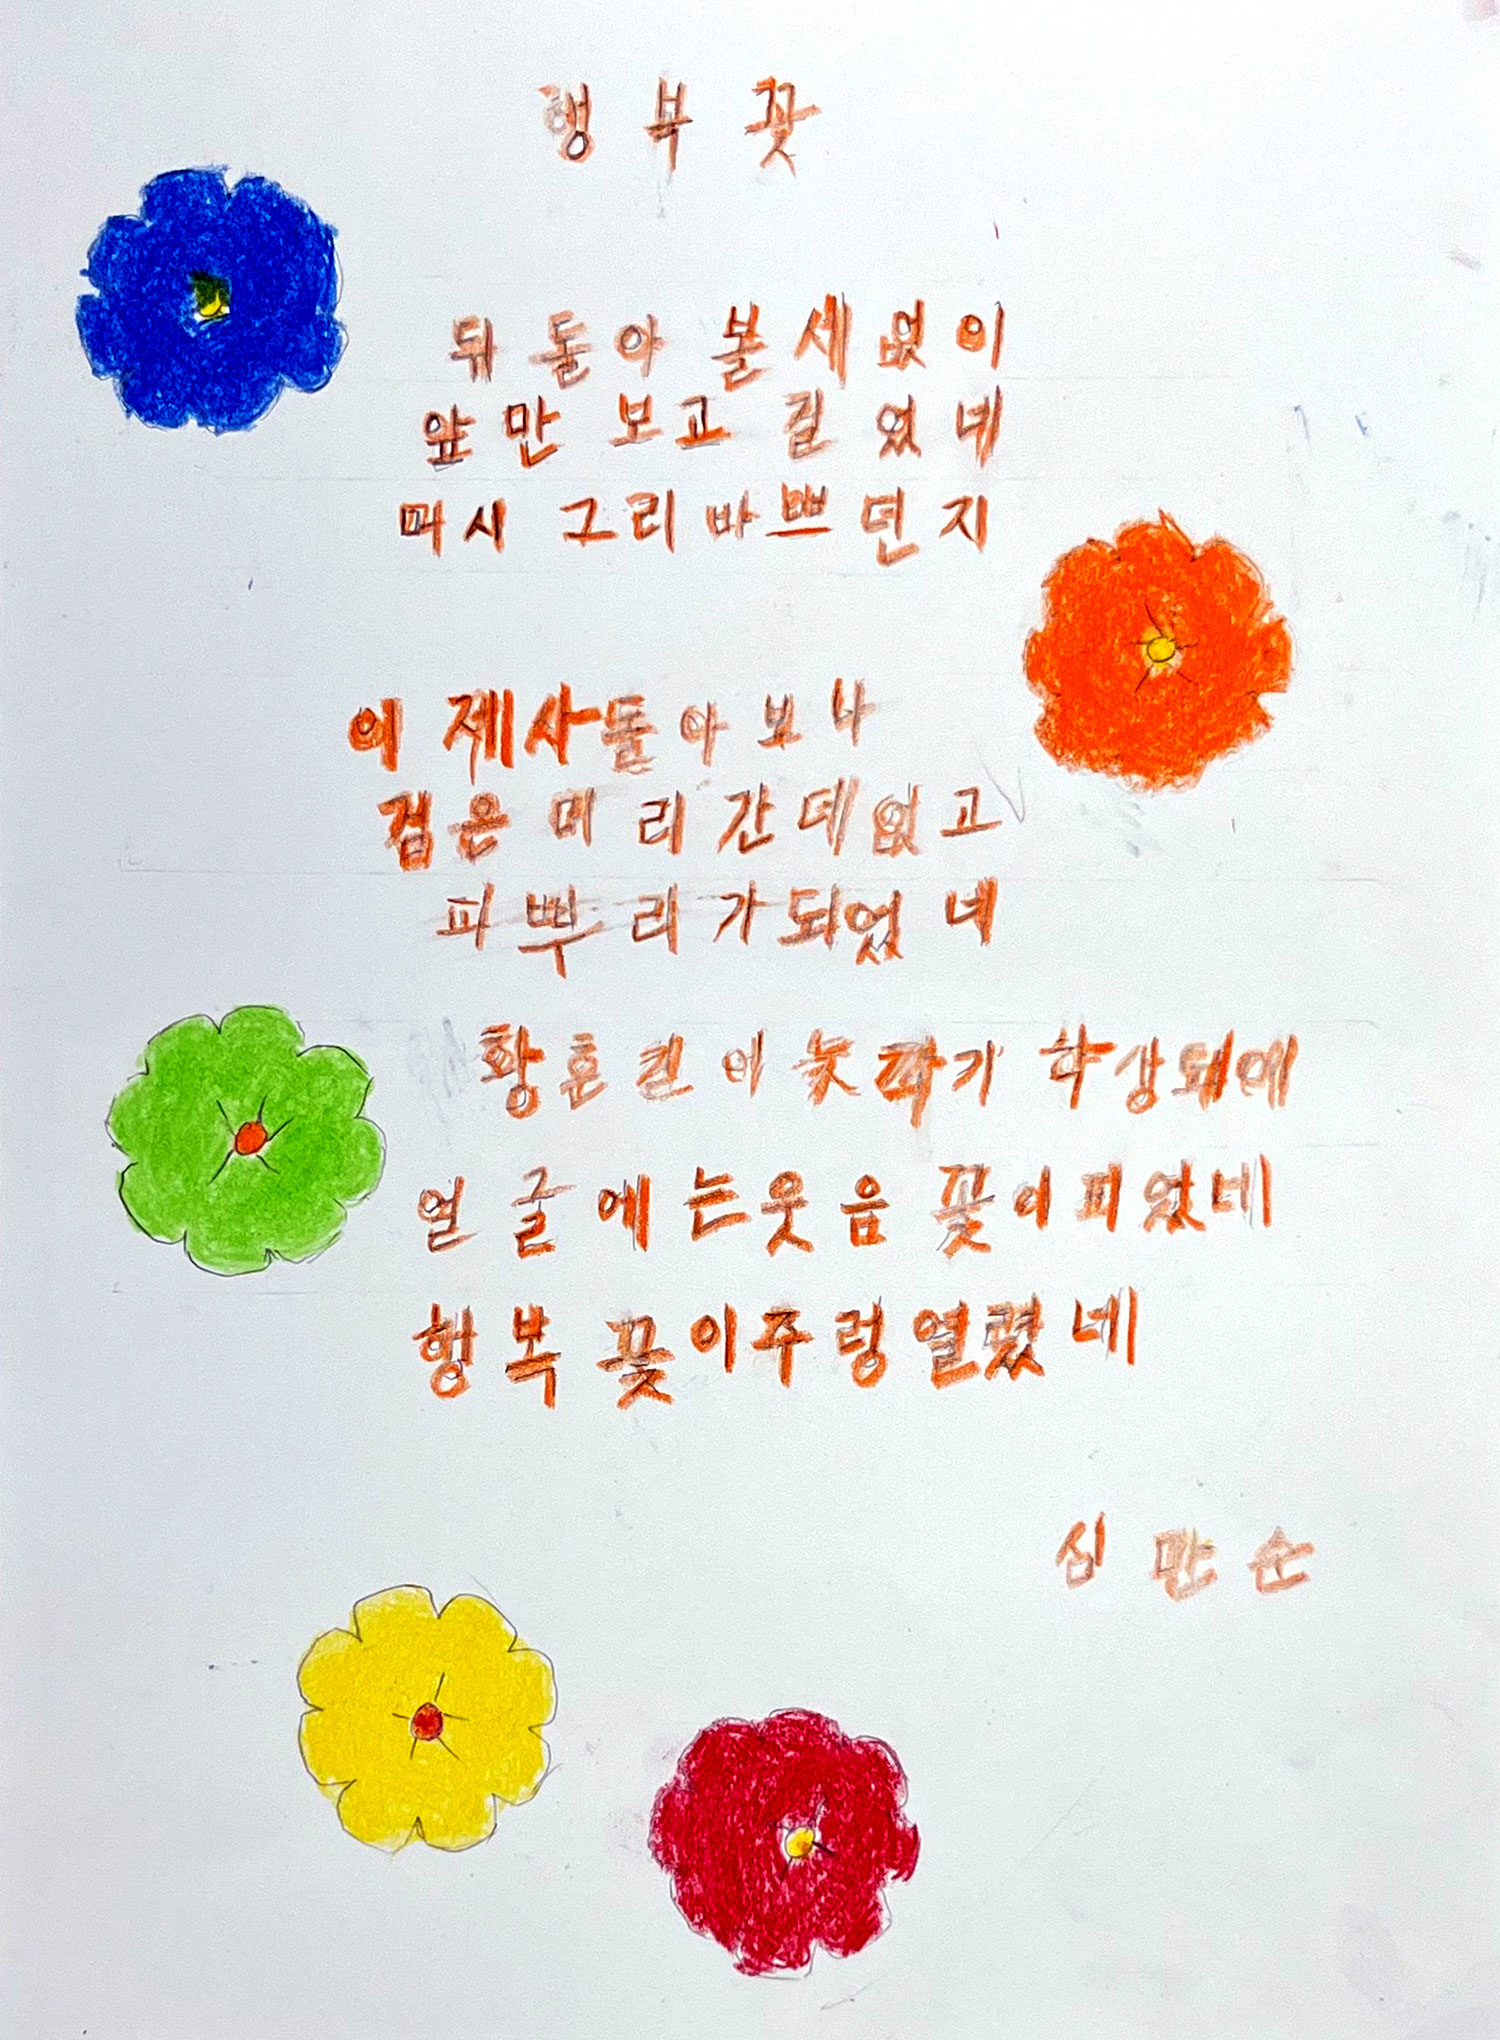 행부꽃
뒤돌아 볼세없이
앞만 보고 길었네
머시 그리바쁘던지
이제사돌아보니
검은머리간데없고
파뿌리가되었네
황혼길이늦깍기 학생되에
얼굴에는웃음꽃이피었네
행복꽃이주렁열렸네
심만순